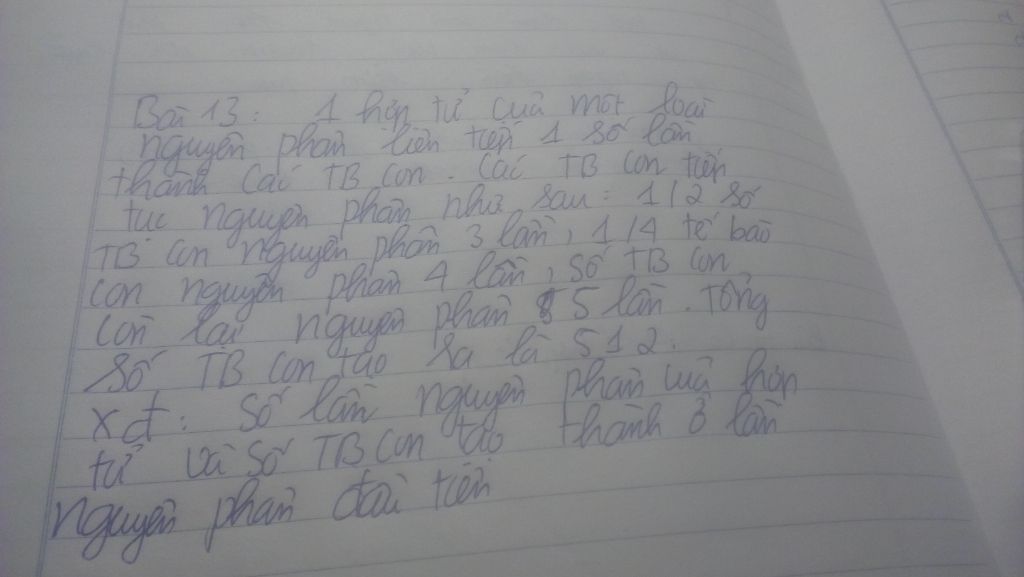 Bài 13: 1 hợp tử của một loài
nguyên phân liên tiếp 1 số lần
thành các TB con. Các TB con tiếp
tục nguyên phân như sau: 1/2 số
TB con nguyên phân 3 lần, 1/4 tế bào
con nguyên phân 4 lần, số TB con
còn lại nguyên phân 5 lần. Tổng
số TB con tạo ra là 512.
Xđ: Số lần nguyên phân của hợp
tử và số TB con tạo thành ở lần
nguyên phân đầu tiên